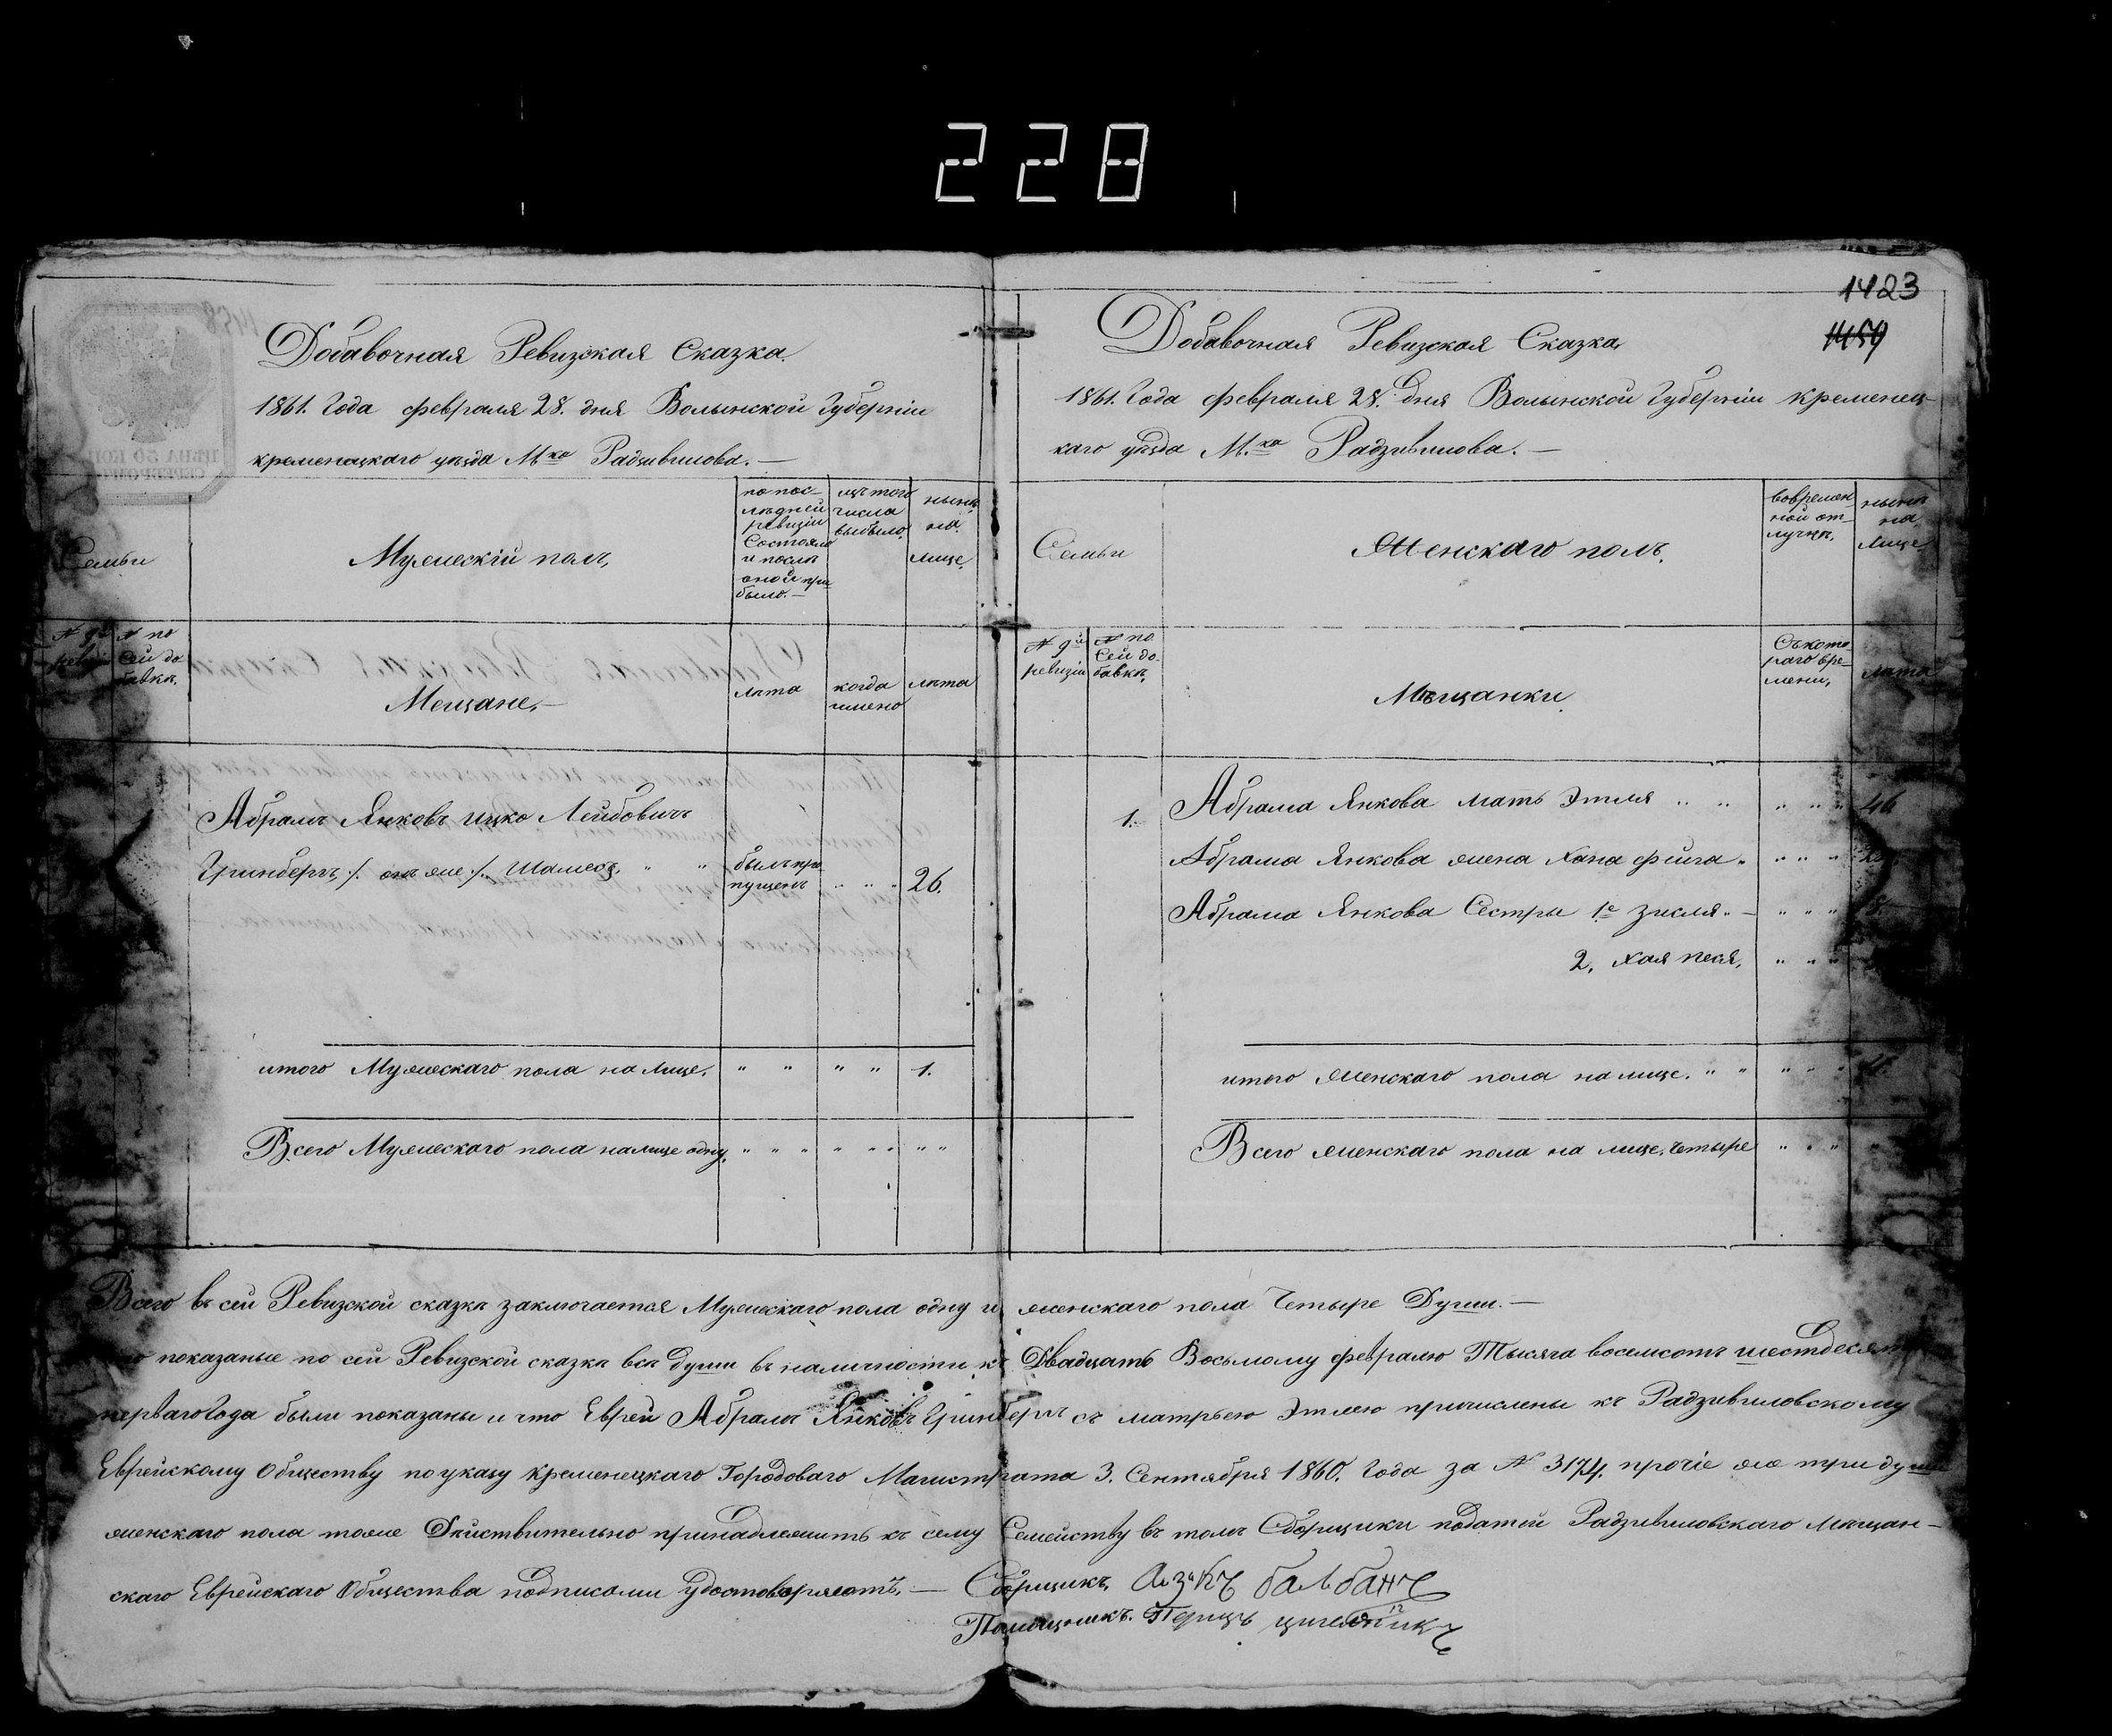 228
1423
1459
Добавочная Ревизская Сказка
1861. Года февраля 28. дня Волынской Губерніи
кременецкаго уѣзда М.ка Радзивилова. —
Семьи
Мужескій полъ,
по пос-
лѣдней
ревизіи
Состояло
и послѣ
оной при
было. —
изъ того
числа
выбыло.
нынѣ
на
лице.
№ 9й
ревизі
№ по
Сей до
бавкѣ.
Мещане, —
лѣта
когда
имено
лѣта
Абрамъ Янковъ ицко Лейбовичъ
Гринбергъ ./. онъ же ./. Шамес " "
былъ про
пущенъ
" " " 26.
итого Мужескаго пола на лице. " " " " 1.
Всего Мужескаго пола на лице одну. " " " " " " " "
Добавочная Ревизская Сказка
1861. Года февраля 28. дня Волынской Губерніи кременец-
каго уѣзда М.ка Радзивилова. —
Семьи
Женскаго полъ.
вовремен
ной от-
лучкѣ.
нынѣ
на
Лице
№ 9й
ревизіи
№ по
Сей до-
бавкѣ,
Мѣщанки
Съ кото-
раго вре-
мени,
лѣта
1. Абрама Янкова мать Этля " " " " " 46
Абрама Янкова жена Хана фейга " " " "
Абрама Янкова Сестры 1е зисля " — " " "
2, Хая песя, " " "
итого Женскаго пола на лице. " " " " " 4.
Всего женскаго пола на лице. Четыре " " "
Всего въ сей Ревизской сказкѣ заключается Мужескаго пола одну и женскаго пола Четыре Души. —
показаные по сей Ревизской сказкѣ всѣ души въ наличности къ Двадцать Восьмому февралю Тысяча восемсотъ шестдесятъ
перваго Года были показаны и что Еврей Абрамъ Янковъ Гринбергъ съ матрьею Этлею причислены къ Радзивиловскому
Еврейскому Обществу по указу Кременецкаго Городоваго Магистрата 3. Сентября 1860. Года за № 3174. прочіе же три души
женскаго пола тоже Дѣйствительно принадлежитъ къ сему Семейству въ томъ Сборщики податей Радзивиловскаго Мѣщан-
скаго Еврейскаго Общества подписами удостоверяютъ, — Сборщикъ, Азикъ балбанъ
Помощникъ. Перицъ